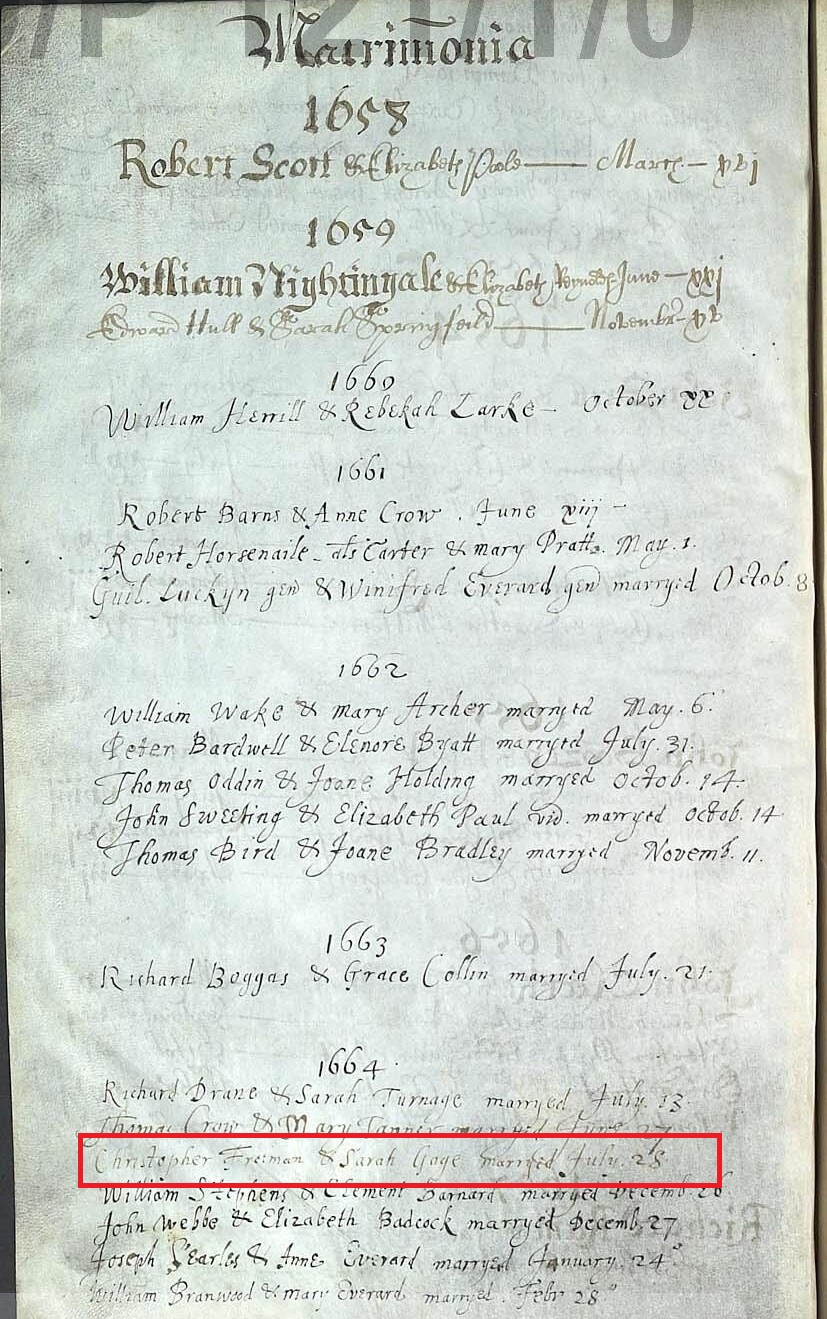 Matrimonia
1658
Robert Scott & Elizabeth Poole — March — xvj
1659
William Nightingale & Elizabeth Reynolds June — xxj
Edward Hull & Sarah Springfeild — Novembr — xv
1660
William Herrill & Rebekah Larke — October xx
1661
Robert Barns & Anne Crow . June xiij —
Robert Horsenaile als Carter & mary Pratt. May. 1.
Guil. Luckyn gen & Winifred Everard gen marryed Octob. 8
1662
William Wake & mary Archer marryed May. 6.
Peter Bardwell & Elenore Byatt marryed July. 31.
Thomas Oddin & Joane Holding marryed Octob. 14.
John Sweeting & Elizabeth Paul vid. marryed Octob. 14
Thomas Bird & Joane Bradley marryed Novemb. 11.
1663
Richard Boggas & Grace Collin marryed July. 21.
1664
Richard Drane & Sarah Turnage marryed July. 13.
Thomas Crow & Mary Tanner marryed June 27
Christopher Freeman & Sarah Gage marryed July. 28
William Stephens & Clement Barnard marryed Decemb. 26
John Webbe & Elizabeth Badcock marryed Decemb. 27
Joseph Searles & Anne Everard marryed January. 24
William Branwood & mary Everard marryed. Febr 28